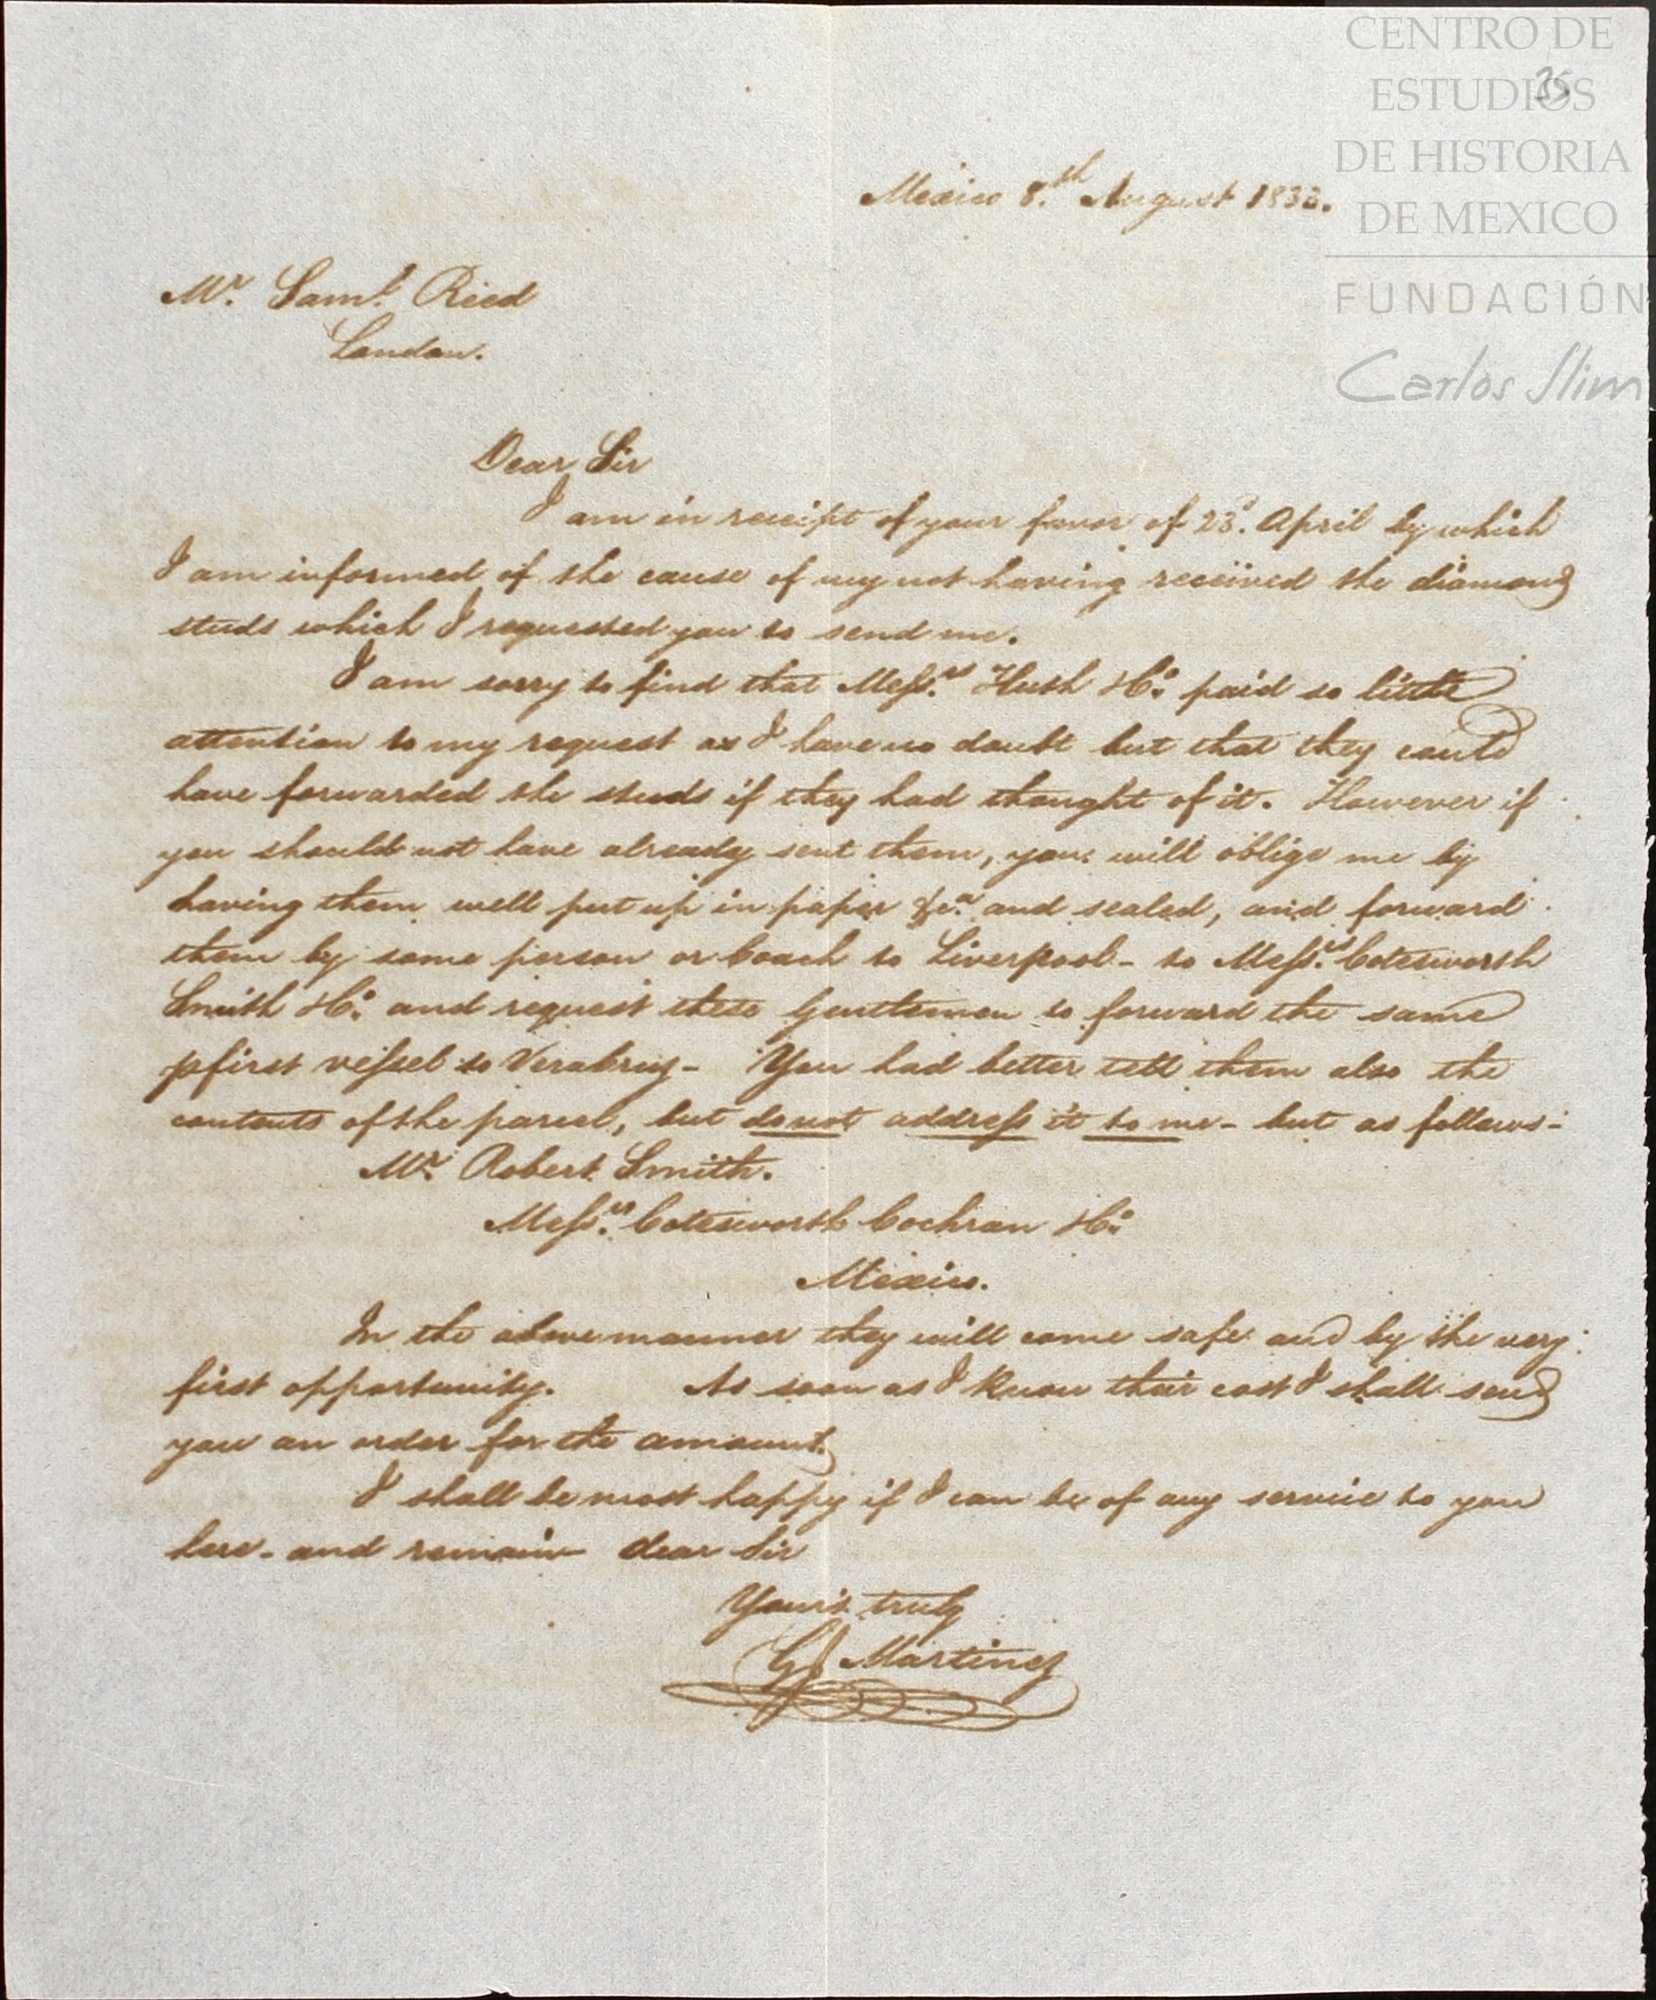 CENTRO DE
ESTUDIOS
DE HISTORIA
DE MEXICO
FUNDACIÓN
Carlos Slim
35
Mexico 8.th August 1833.
Mr. Saml. Reed
London.
Dear Sir
I am in receipt of your favor of 23d. April by which
I am informed of the cause of my not having received the diamond
studs which I requested you to send me.
I am sorry to find that Messrs. Huth & Co. paid so little
attention to my request as I have no doubt but that they could
have forwarded the studs if they had thought of it. However if
you should not have already sent them, you will oblige me by
having them well put up in paper &ca. and sealed, and forward
them by some person or Coach to Liverpool - to Messrs. Cotesworth
Smith & Co. and request these Gentlemen to forward the same
p first vessel to Veracruz - You had better tell them also the
contents of the parcel, but do not address it to me - but as follows -
Mr. Robert Smith.
Messrs. Cotesworth Cochran & Co.
Mexico.
In the above manner they will come safe and by the very
first opportunity. As soon as I know their cost I shall send
you an order for the amount.
I shall be most happy if I can be of any service to you
here - and remain dear Sir
Your's truly
Martinez